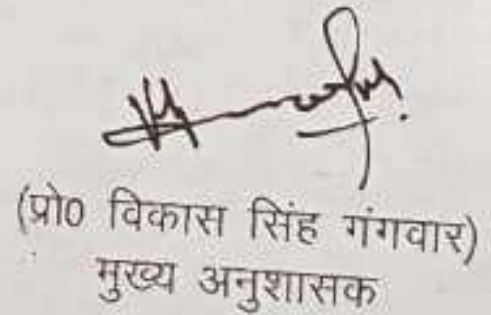 (प्रो0 विकास सिंह गंगवार)
मुख्य अनुशासक